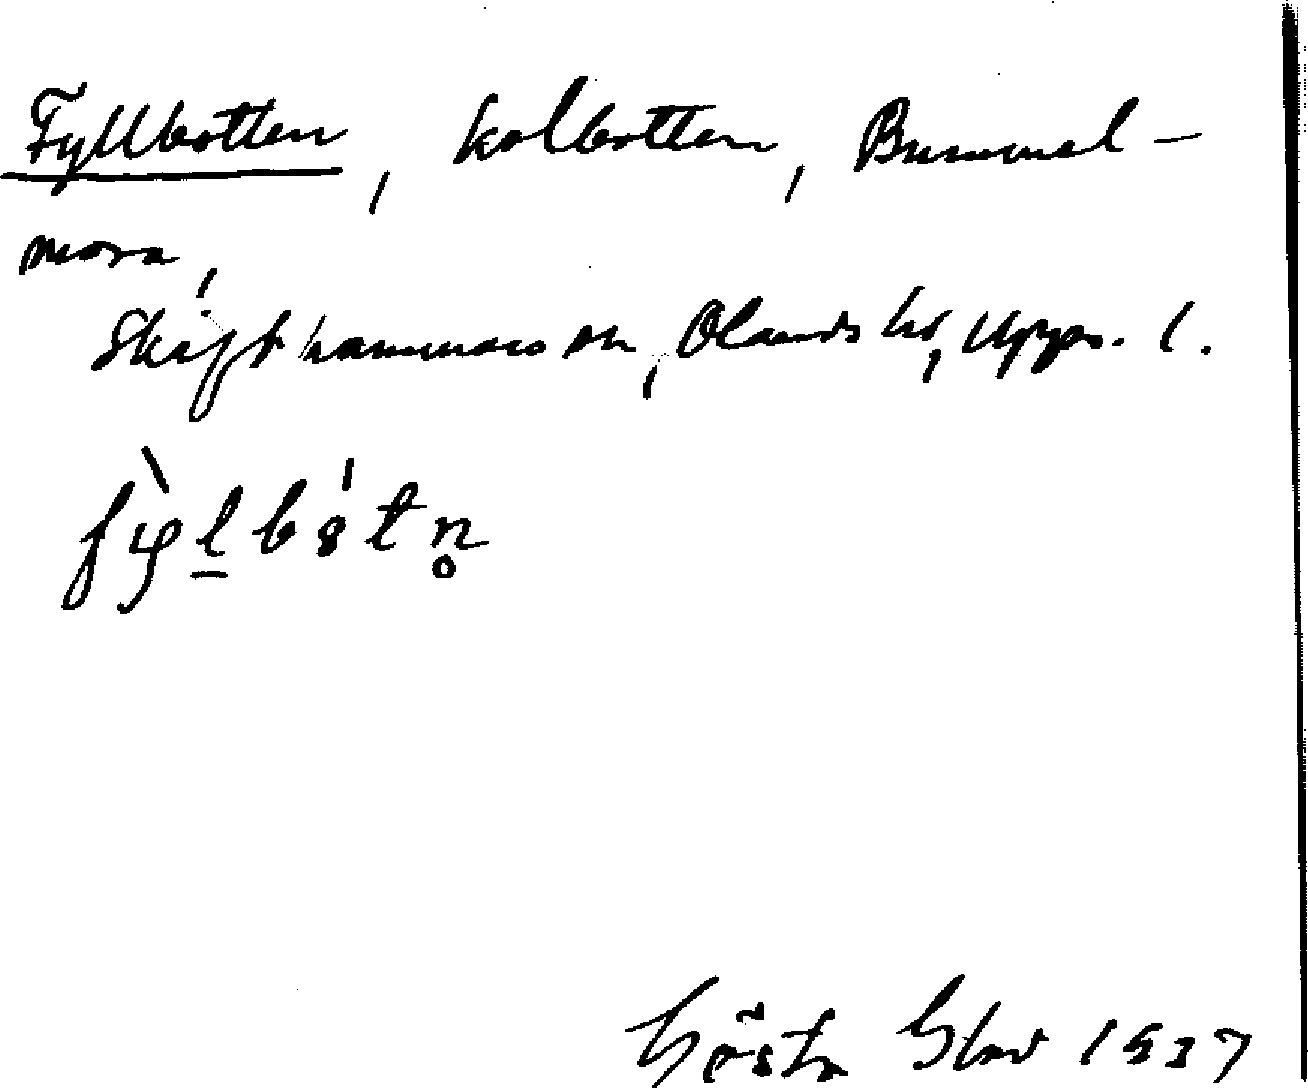 Fyllbotten, kolbotten, Bummel-
mora,
Skäfthammars sn, Olands hd, Upps. l.
fỳl̲bótn̥
Gösta 1937